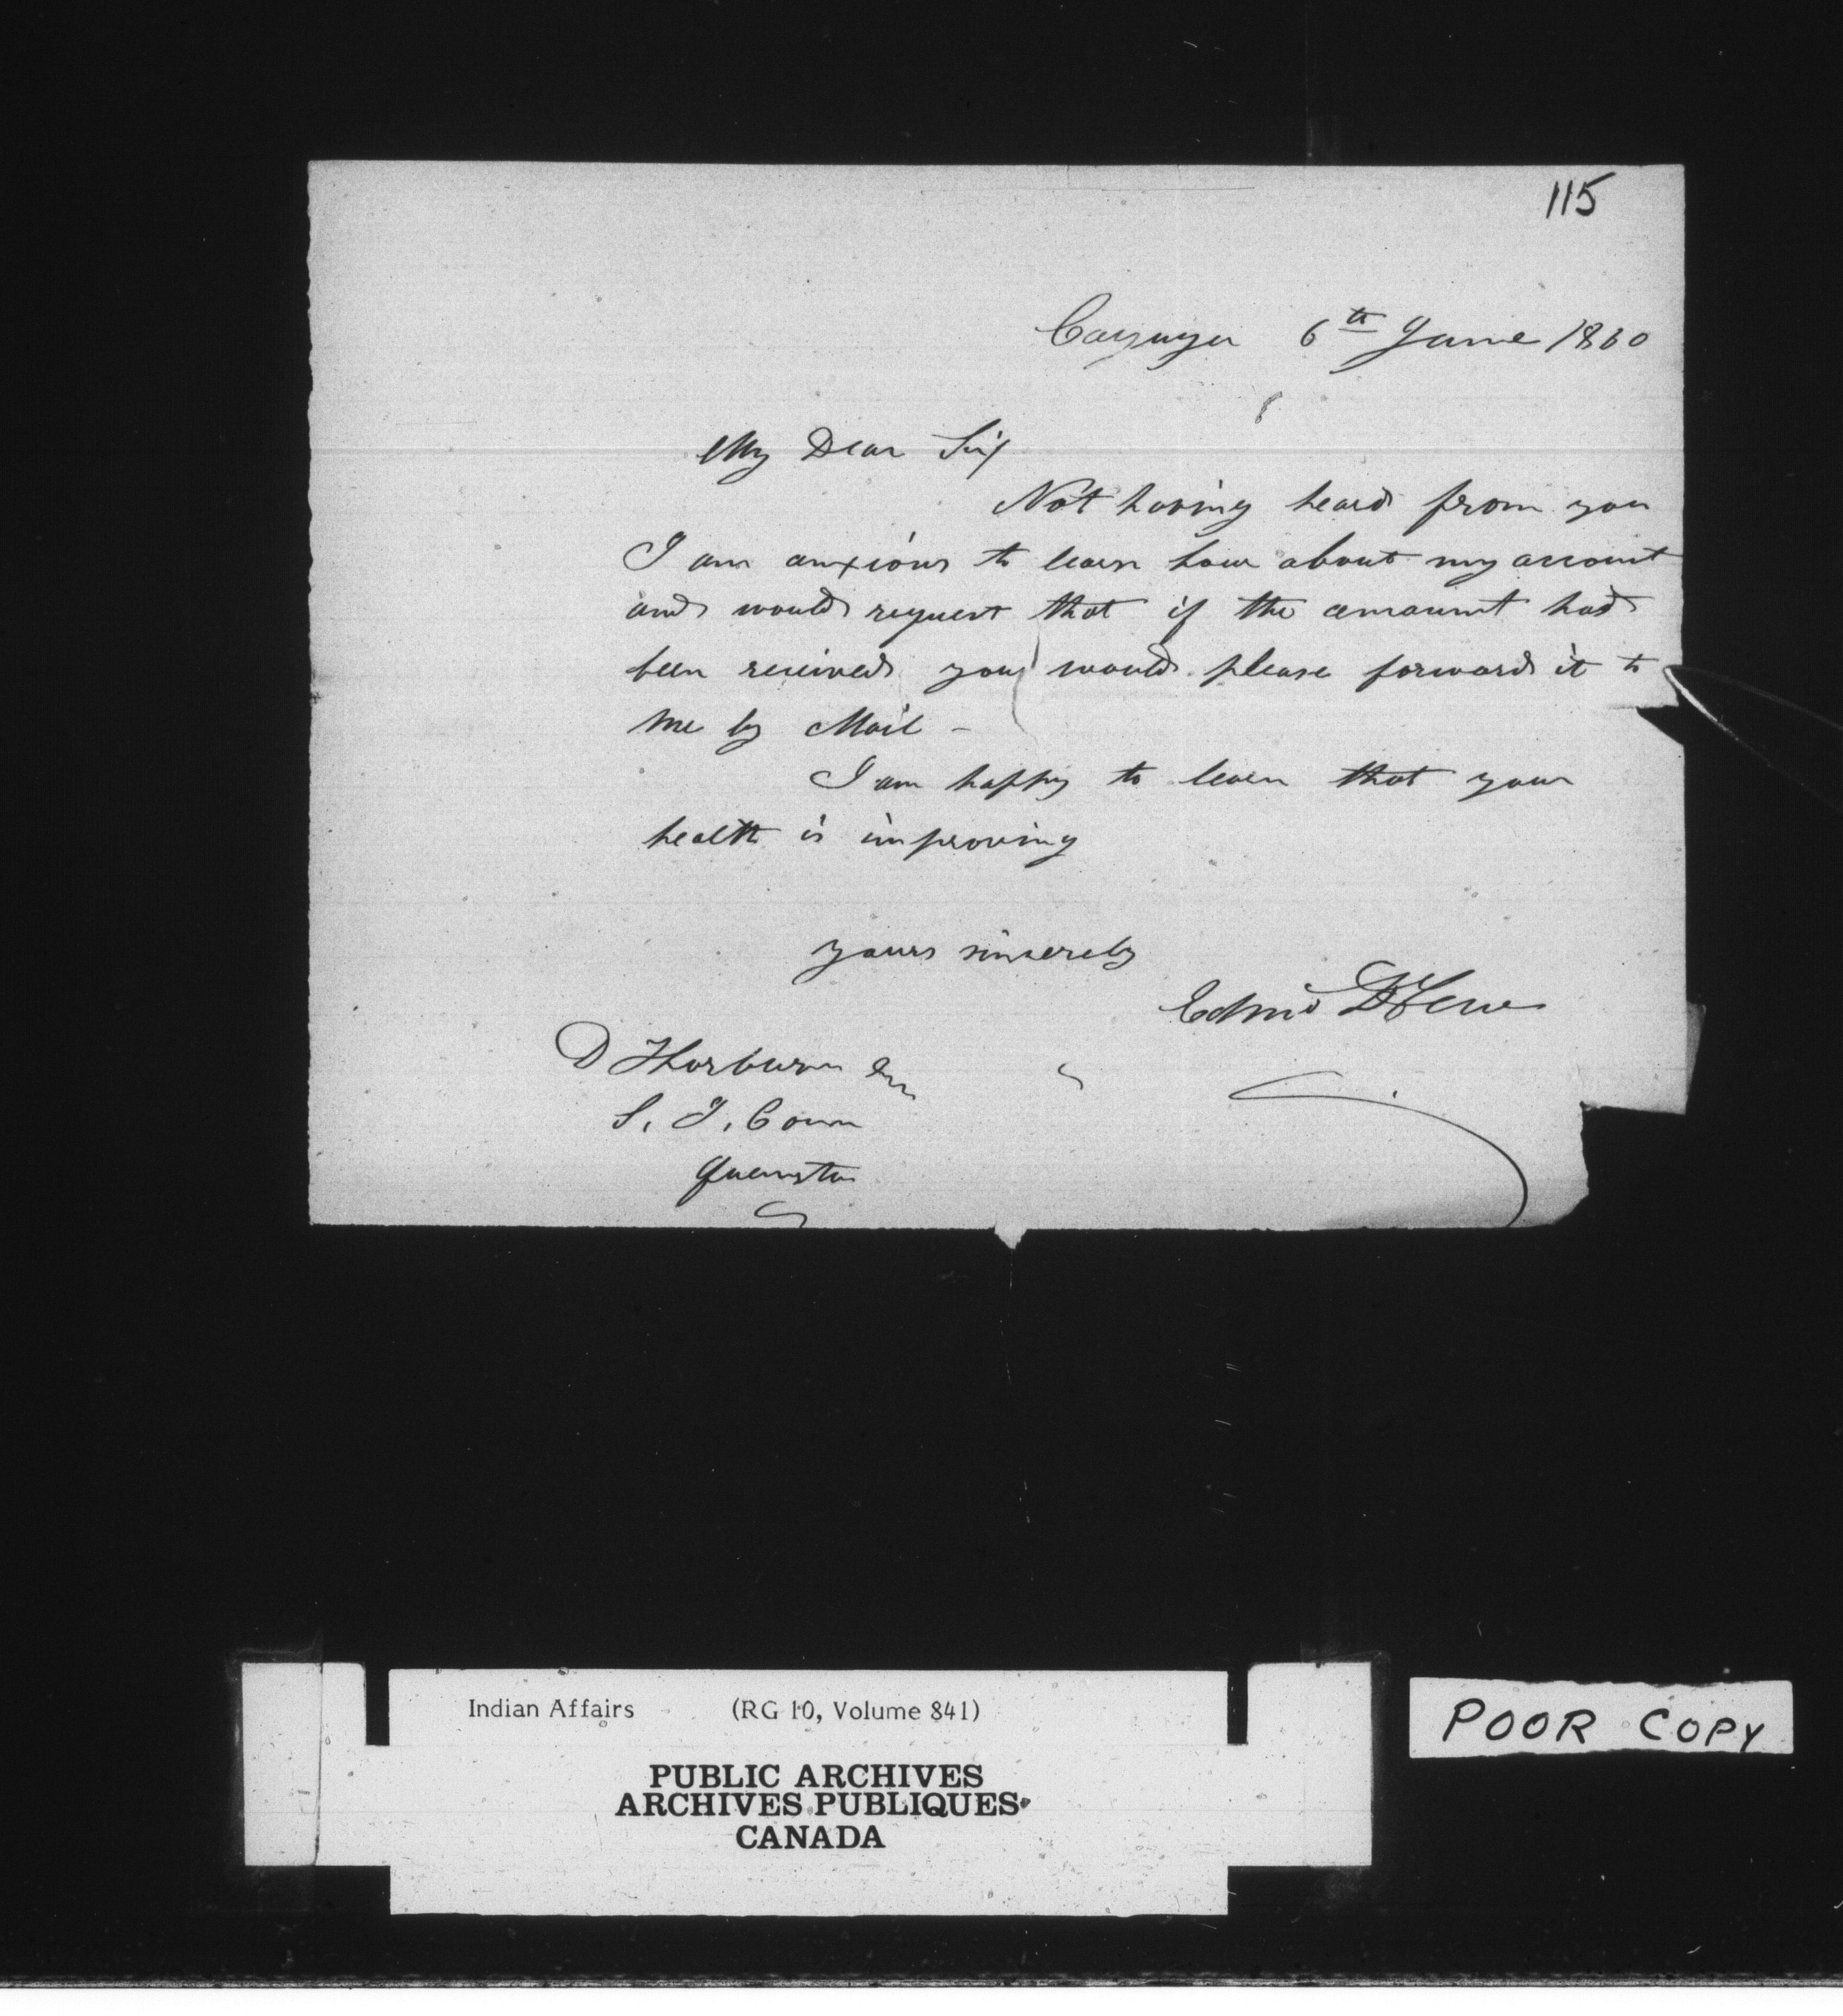 115
Cayuga 6th June 1860
My Dear Sir
Not having heard from you
I am anxious to learn how about my account
and would request that if the amount had
been received you would please forward it to
me by Mail -
I am happy to learn that your
health is improving
yours sincerely
Edmd DeCew
D Thorburn Esq
S. I. Comr
Queenston
Indian Affairs (RG 10, Volume 841)
PUBLIC ARCHIVES
ARCHIVES PUBLIQUES
CANADA
POOR COPY